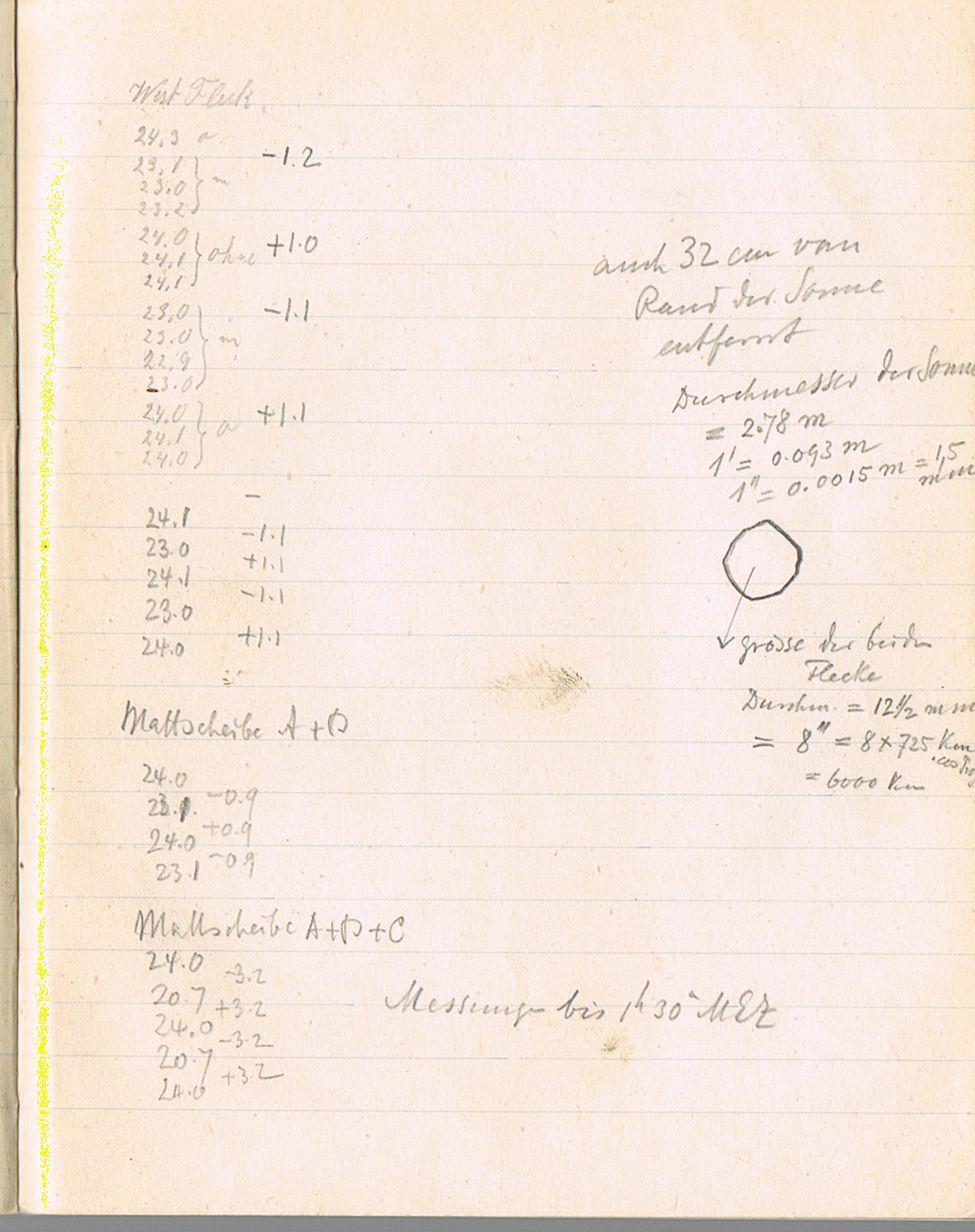 West Fleck
24.3 o
23.1
23.0 m -1.2
23.2
24.0
24.1 ohne +1.0
24.1
23.0 -1.1
23.0 m
22.9
23.0
24.0 +1.1
24.1 o
24.0
-
24.1
-1.1
23.0
+1.1
24.1
-1.1
23.0
+1.1
24.0
Mattscheibe A+B
24.0
-0.9
23.1
+0.9
24.0
-0.9
23.1
Mattscheibe A+B+C
24.0
-3.2
20.7
+3.2
24.0
-3.2
20.7
+3.2
24.0
Messungen bis 1h 30 MEZ
auch 32 cm vom
Rand der Sonne
entfernt
Durchmesser der Sonne
= 2.78 m
1' = 0.093 m
1" = 0.0015 m = 1,5
mm
grösse der beiden
Flecke
Durchm. = 12 1/2 mm
= 8" = 8 x 725 Km
= 6000 Km